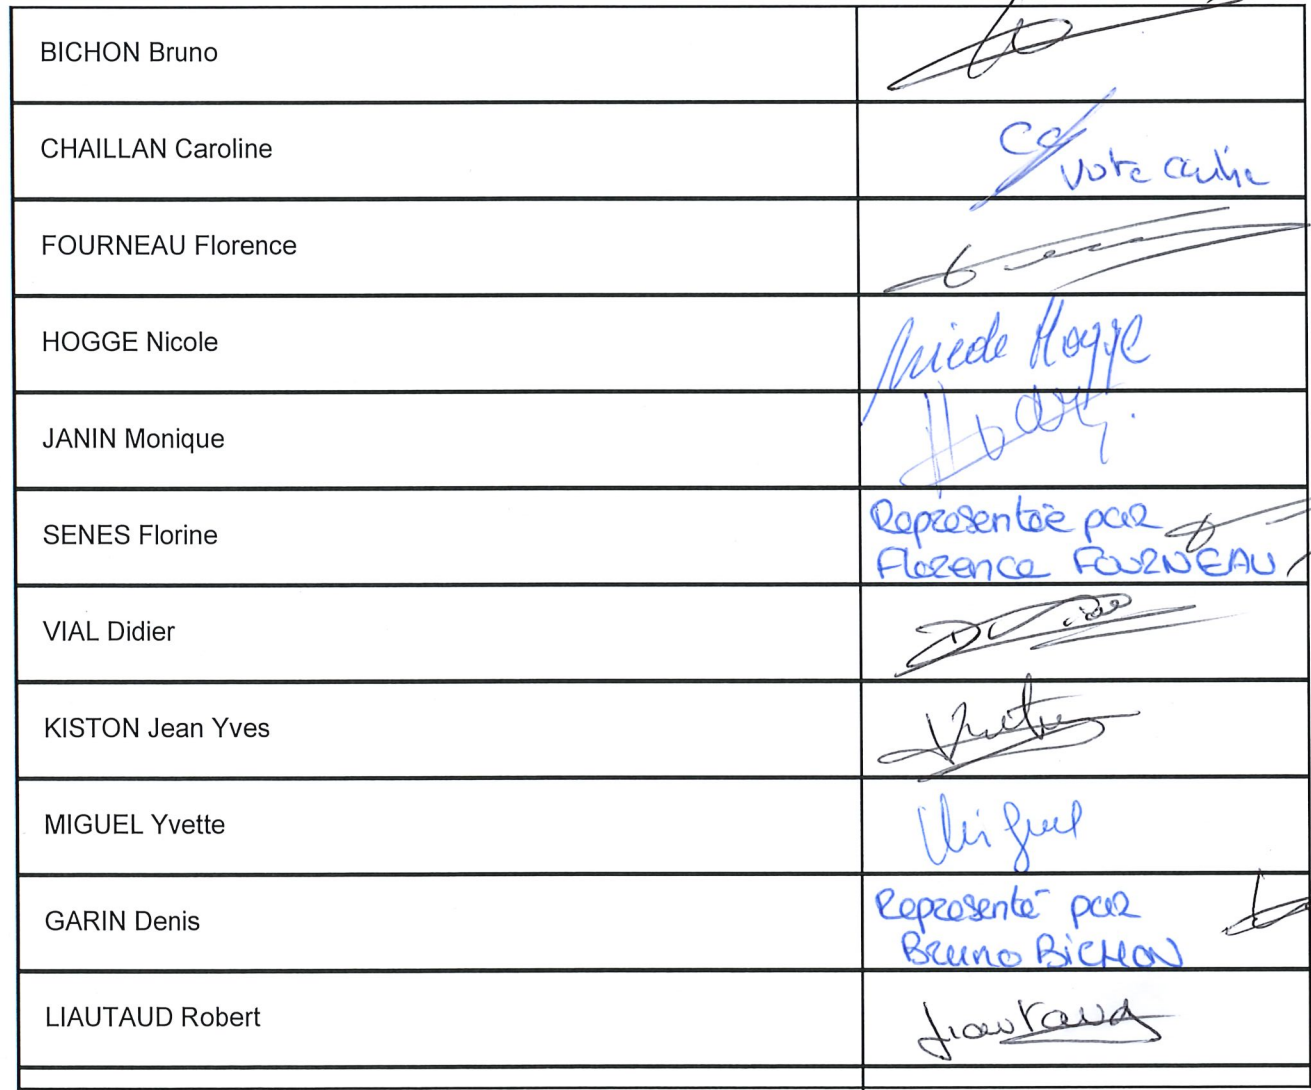 BICHON Bruno
CHAILLAN Caroline
Vote contre
FOURNEAU Florence
HOGGE Nicole
Nicole Hogge
JANIN Monique
SENES Florine
Représentée par
Florence FOURNEAU
VIAL Didier
KISTON Jean Yves
MIGUEL Yvette
Miguel
GARIN Denis
Représenté par
Bruno BICHON
LIAUTAUD Robert
Liautaud